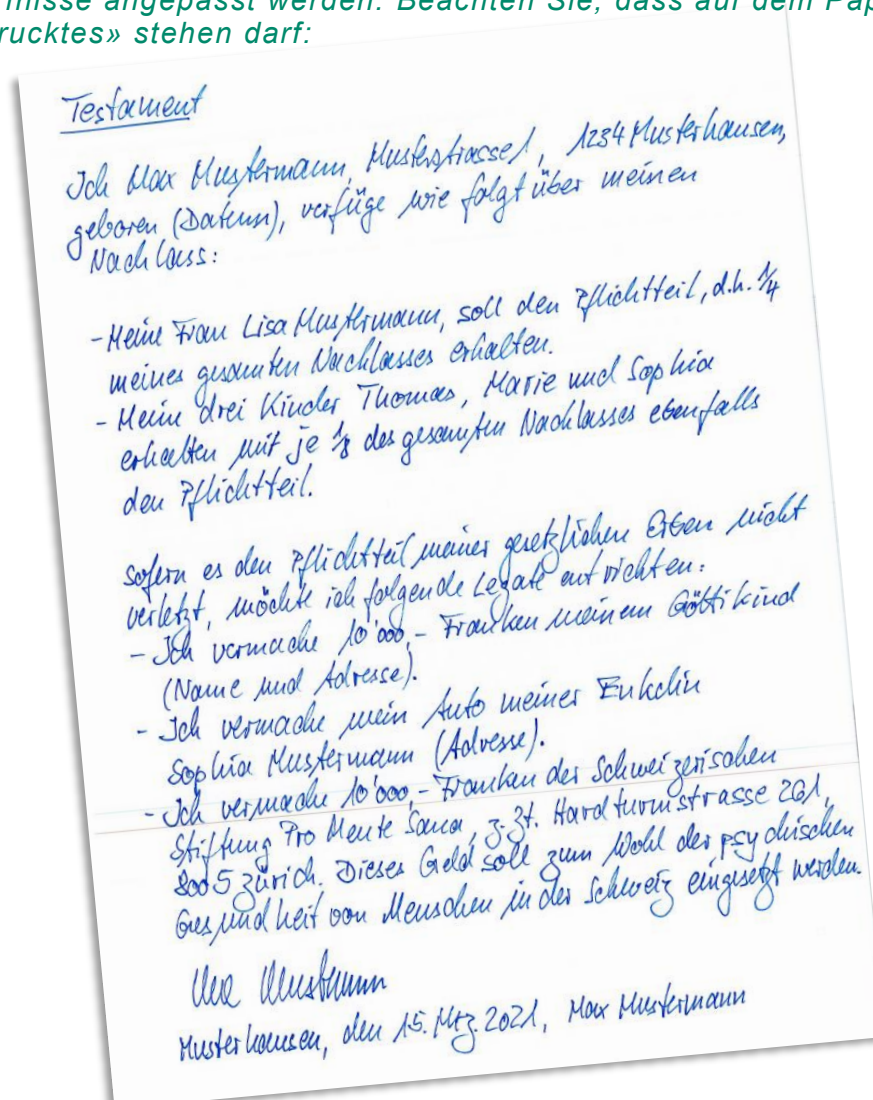 rnisse angepasst werden. Beachten Sie, dass auf dem Pap
rucktes» stehen darf:
Testament
Ich Max Mustermann, Musterstrasse 1, 1234 Musterhausen,
geboren (Datum), verfüge wie folgt über meinen
Nachlass:
- Meine Frau Lisa Mustermann, soll den Pflichtteil, d.h. 1/4
meines gesamten Nachlasses erhalten.
- Meine drei Kinder Thomas, Marie und Sophia
erhalten mit je 1/8 des gesamten Nachlasses ebenfalls
den Pflichtteil.
Sofern es den Pflichtteil meiner gesetzlichen Erben nicht
verletzt, möchte ich folgende Legate entrichten:
- Ich vermache 10'000.- Franken meinem Göttikind
(Name und Adresse).
- Ich vermache mein Auto meiner Enkelin
Sophia Mustermann (Adresse).
- Ich vermache 10'000.- Franken der Schweizerischen
Stiftung Pro Mente Sana, z.Zt. Hardturmstrasse 261,
8005 Zürich. Dieses Geld soll zum Wohl der psychischen
Gesundheit von Menschen in der Schweiz eingesetzt werden.
Max Mustermann
Musterhausen, den 15. Mrz. 2021, Max Mustermann